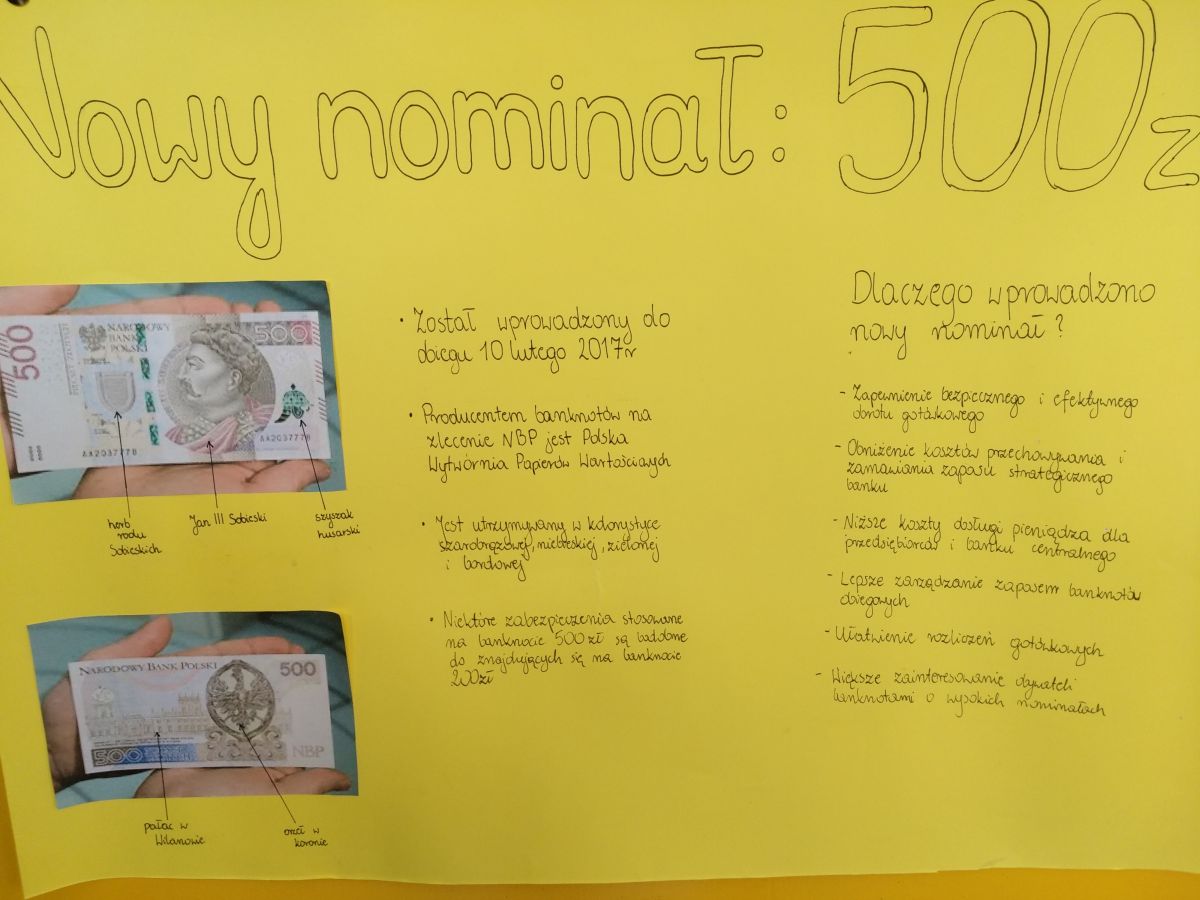 Nowy nominał: 500 z
500
NARODOWY
BANK
POLSKI
500
AA2037778
AA2037778
herb
rodu
Sobieskich
Jan III Sobieski
szyszak
husarski
NARODOWY BANK POLSKI
500
500
NBP
pałac w
Wilanowie
orzeł w
koronie
• Został wprowadzony do
obiegu 10 lutego 2017r
• Producentem banknotów na
zlecenie NBP jest Polska
Wytwórnia Papierów Wartościowych
• Jest utrzymywany w kolorystyce
szarobrązowej, niebieskiej, zielonej
i bordowej
• Niektóre zabezpieczenia stosowane
na banknocie 500 zł są
do znajdujących się na banknocie
200zł
Dlaczego wprowadzono
nowy nominał?
- Zapewnienie bezpiecznego i efektywnego
obrotu gotówkowego
- Obniżenie kosztów przechowywania i
zamawiania zapasu strategicznego
banku
- Niższe koszty obsługi pieniądza dla
przedsiębiorców i banku centralnego
- Lepsze zarządzanie zapasem banknotów
obiegowych
- Ułatwienie rozliczeń gotówkowych
- Większe zainteresowanie obywateli
banknotami o wysokich nominałach